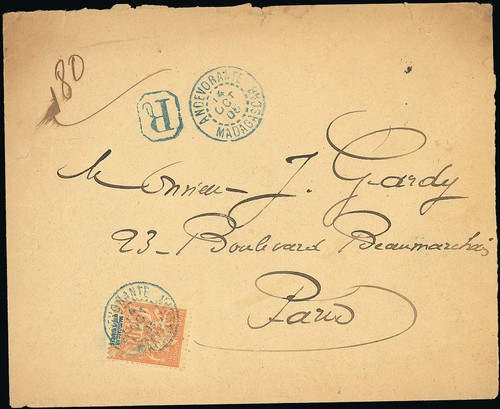 180
R
ANDEVORANTE
14
OCT
MADAGASCAR
Monsieur J. Gardy
23 - Boulevard Beaumarchais
Paris